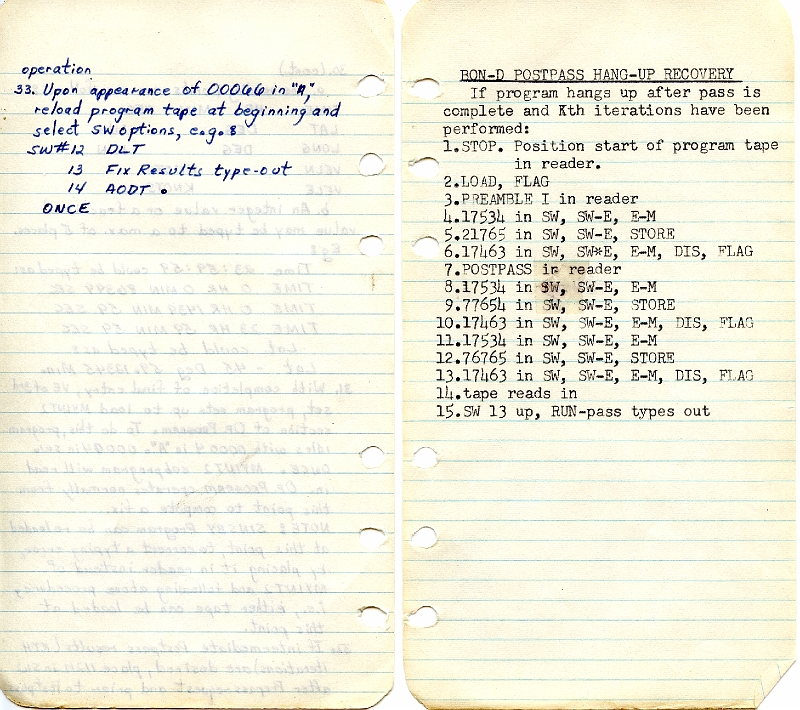 operation
33. Upon appearance of 00066 in "A",
reload program tape at beginning and
select SW options, e.g. 8
SW#12 DLT
13 Fix Results type-out
14 AODT.
ONCE
BON-D POSTPASS HANG-UP RECOVERY
If program hangs up after pass is
complete and Kth iterations have been
performed:
1.STOP. Position start of program tape
in reader.
2.LOAD, FLAG
3.PREAMBLE I in reader
4.17534 in SW, SW-E, E-M
5.21765 in SW, SW-E, STORE
6.17463 in SW, SW*E, E-M, DIS, FLAG
7.POSTPASS in reader
8.17534 in SW, SW-E, E-M
9.77654 in SW, SW-E, STORE
10.17463 in SW, SW-E, E-M, DIS, FLAG
11.17534 in SW, SW-E, E-M
12.76765 in SW, SW-E, STORE
13.17463 in SW, SW-E, E-M, DIS, FLAG
14.tape reads in
15.SW 13 up, RUN-pass types out